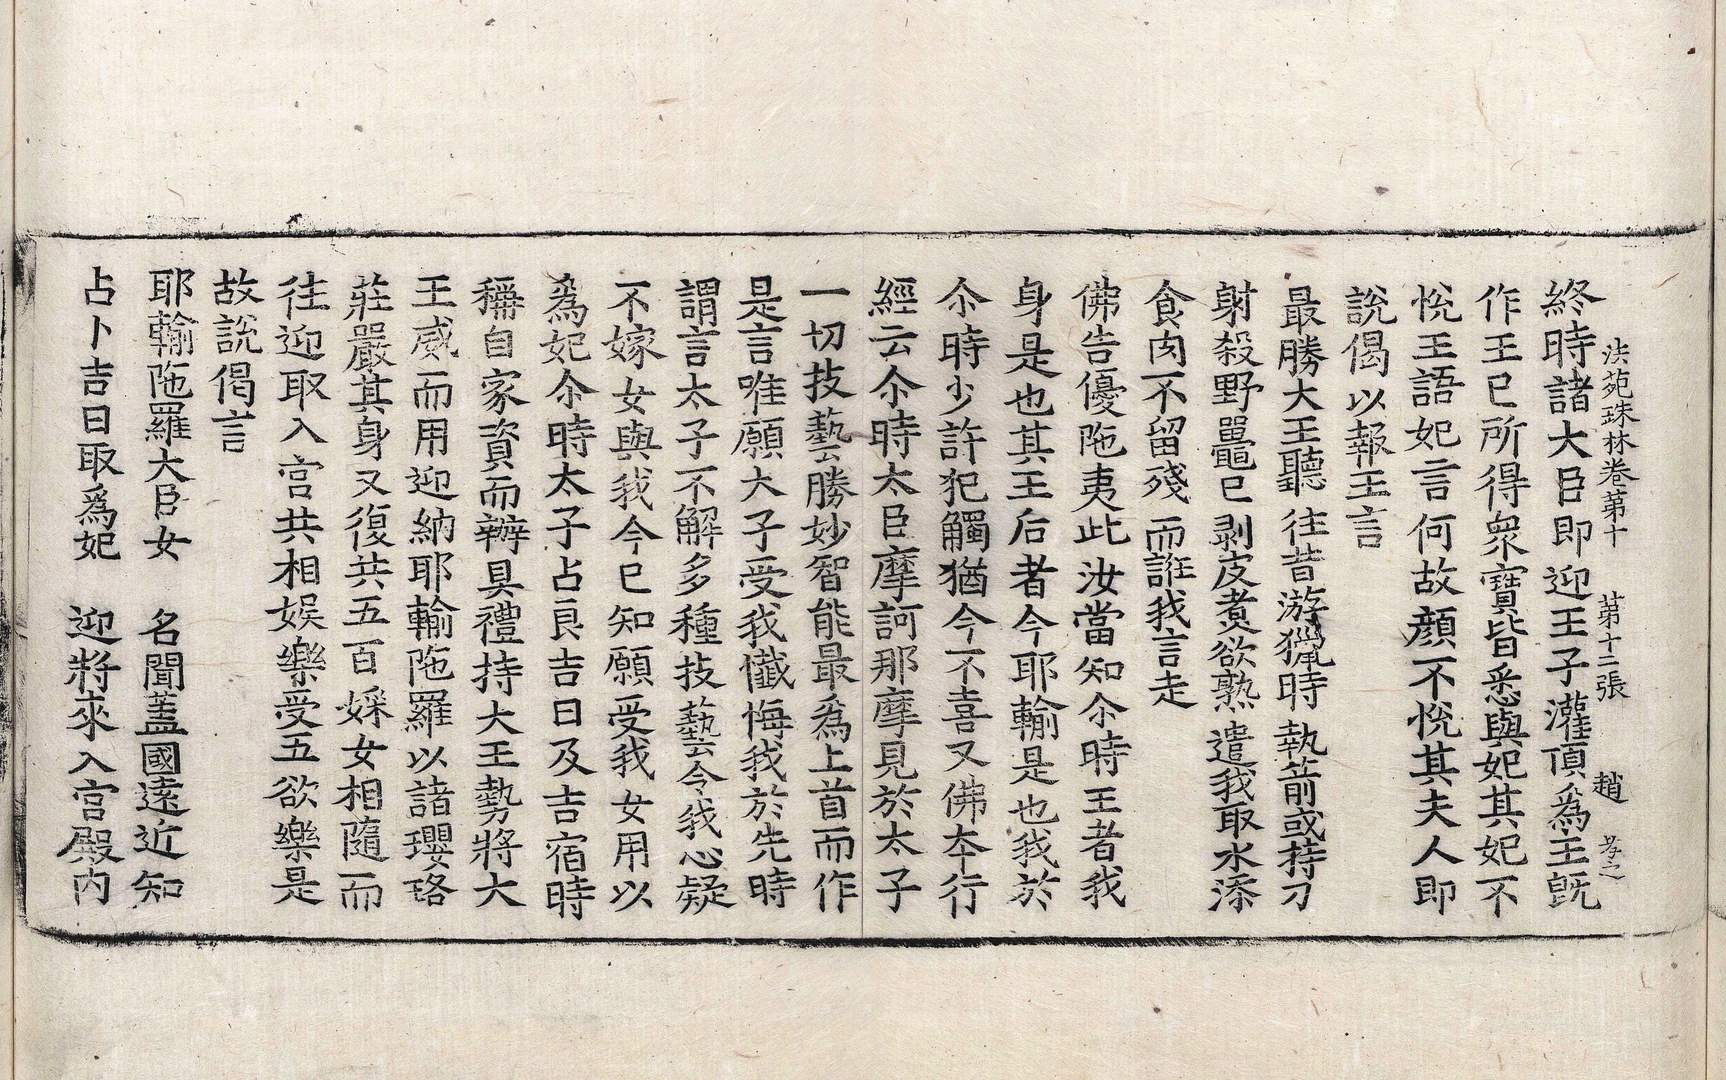 法苑珠林卷第十　第十二張　趙　孝之
終時諸大臣即迎王子灌頂爲王旣
作王已所得衆寶皆悉與妃其妃不
悅王語妃言何故顔不悅其夫人即
說偈以報王言
最勝大王聽　往昔游獵時　執箭或持刀
射殺野鼉已　剥皮煮欲熟　遣我取水添
食肉不留殘　而誑我言走
佛告優陁夷此汝當知尒時王者我
身是也其王后者今耶輸是也我於
尒時少許犯觸猶今不喜又佛夲行
經云尒時太臣摩訶那摩見於太子
一切技藝勝妙智能最爲上首而作
是言唯願大子受我懺悔我於先時
謂言太子不解多種技藝令我心疑
不嫁女與我今已知願受我女用以
爲妃尒時太子占良吉日及吉宿時
稱自家資而辦具禮持大王勢將大
王威而用迎納耶輸陁羅以諸瓔珞
莊嚴其身又復共五百婇女相隨而
往迎取入宮共相娛樂受五欲樂是
故說偈言
耶輸陁羅大臣女　名聞蓋國遠近知
占卜吉日取爲妃　迎將來入宮殿內